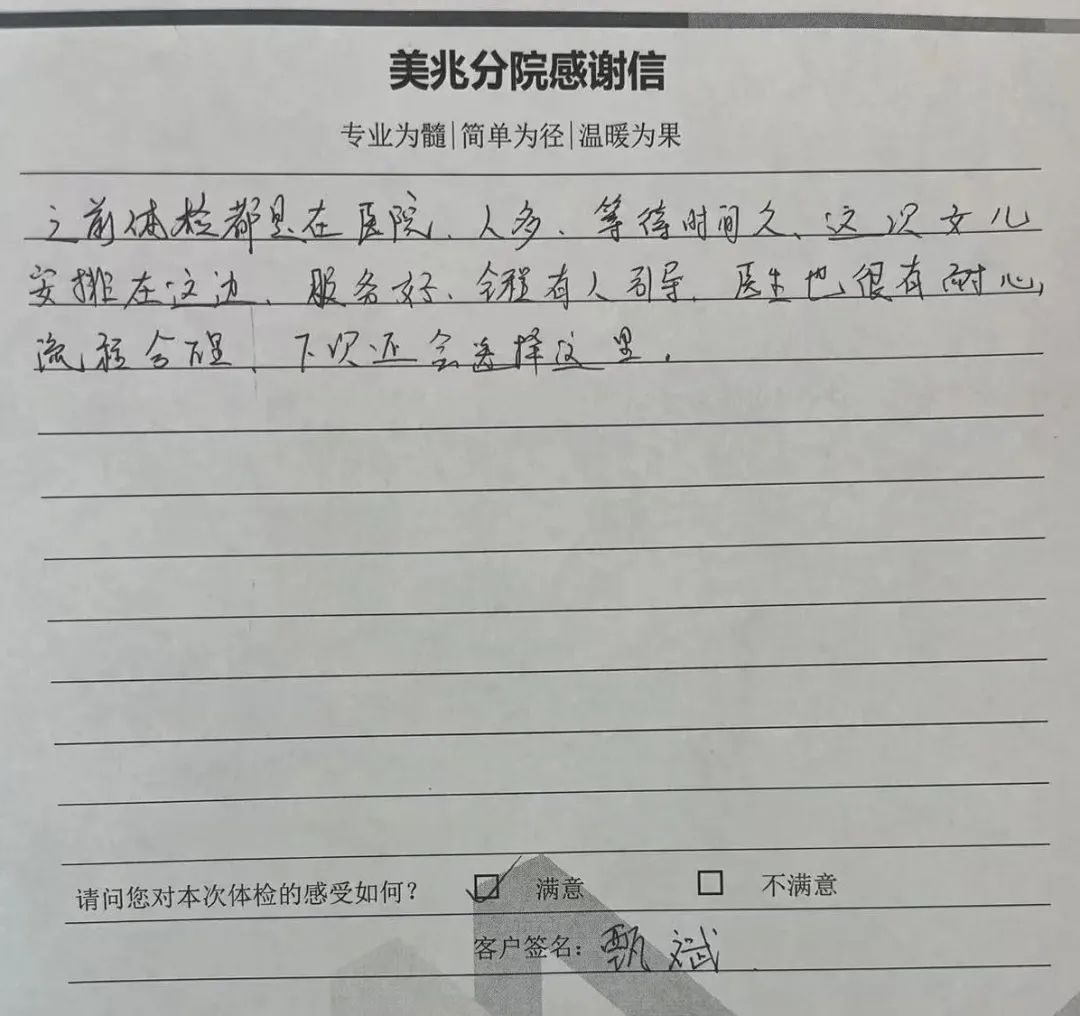 美兆分院感谢信
专业为髓|简单为径|温暖为果
之前体检都是在医院、人多、等待时间久、这次女儿
安排在这边、服务好、全程有人引导、医生也很有耐心,
流程合理、下次还会选择这里.
请问您对本次体检的感受如何? 满意 不满意
客户签名: 甄斌